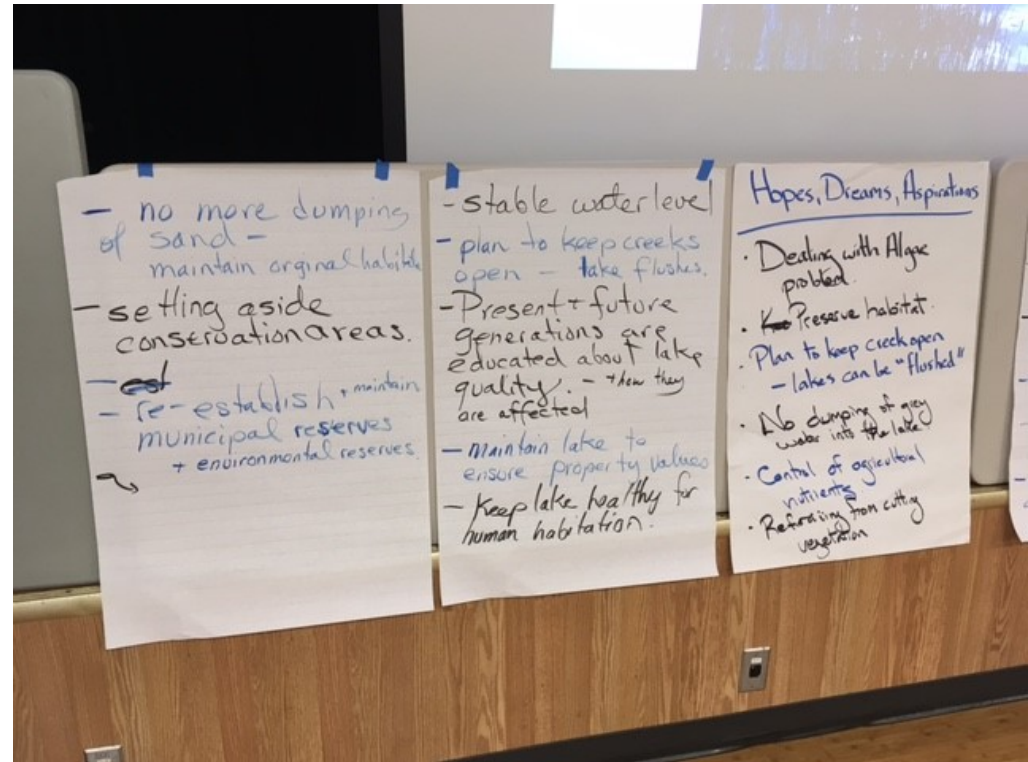 - no more dumping
of sand -
maintain orginal habitats
- setting aside
conservation areas.
- est
- re-establish + maintain
municipal reserves
+ environmental reserves.
- stable water level
- plan to keep creeks
open - lake flushes.
- Present + future
generations are
educated about lake
quality. - + how they
are affected
- maintain lake to
ensure property values
- Keep lake healthy for
human habitation.
Hopes, Dreams, Aspirations
· Dealing with Algae
problem.
· Preserve habitat.
· Plan to keep creek open
- lakes can be "flushed"
· No dumping of grey
water into the lake
· Control of agricultural
nutrients
· Refraining from cutting
vegetation